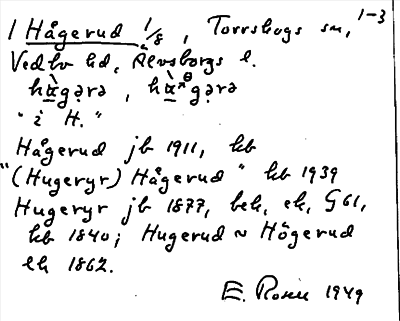 1 Hågerud 1/8, Torrskogs sn, 1-3
Vedbo hd, Älvsborgs l.
"i H."
Hågerud jb 1911, kb
"(Hugeryr) Hågerud" kb 1939
Hugeryr jb 1877, bek, ek, G61,
kb 1840; Hugerud ~ Högerud
ek 1862.
E. Rosén 1949